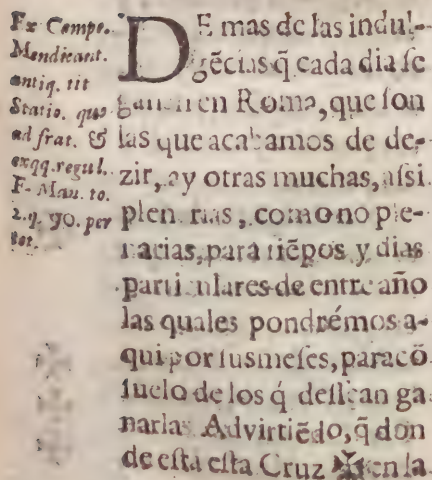 Ex Compe.
Mendicant.
antiq. tit
Statio. quo
ad frat. &
exqq. regul.
F. Man. to.
2. q. 90. per
tot.
DE mas de las indul-
gẽcias q̃ cada dia ſe
ganan en Roma, que ſon
las que acabamos de de-
zir, ay otras muchas, aſsi
plenarias, como no ple-
narias, para tiẽpos y dias
particulares de entre año
las quales pondrémos a-
qui por ſus meſes, para cõ
ſuelo de los q̃ deſſean ga
narlas. Advirtiẽdo, q̃ don
de eſta eſta Cruz ✠ en la